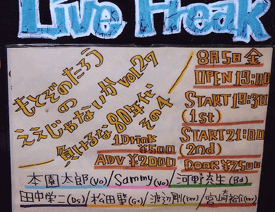 Live Freak
もとぞのたろう
の
ええじゃないか vol.27
負けるな80年代
その4
1Drink
¥500
ADV ¥2000
8月5日 金
OPEN 19:00
START 19:30
(1st)
START 21:00
(2nd)
Door ¥2500
本園太郎(Vo)/Sammy(Vo)/河野充生(Ba)
田中栄二(Ds)/松田賢(Gt)/渡辺剛(Pn)/宮崎裕介(Pn)